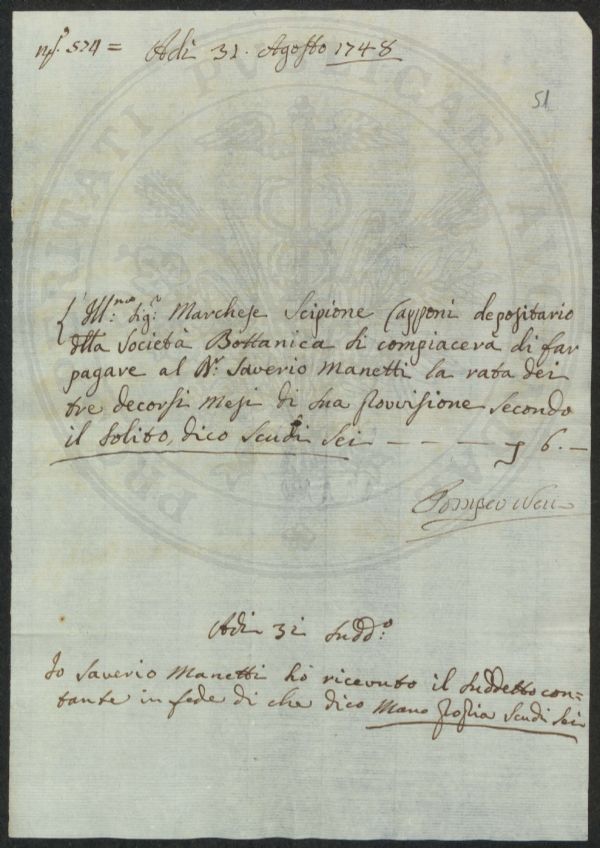 574 = Adi 31. Agosto 1748
51
L'Ill.mo Sig.r Marchese Scipione Capponi depositario
della Società Bottanica si compiacerà di far
pagare al Dr. Saverio Manetti la rata dei
tre decorsi mesi di sua provvisione secondo
il solito, dico scudi sei — — — — 6. —
Pompeo Neri
Adi 31 sudd.o
Io Saverio Manetti hò ricevuto il suddetto con=
tante in fede di che dico Mano ppria scudi sei